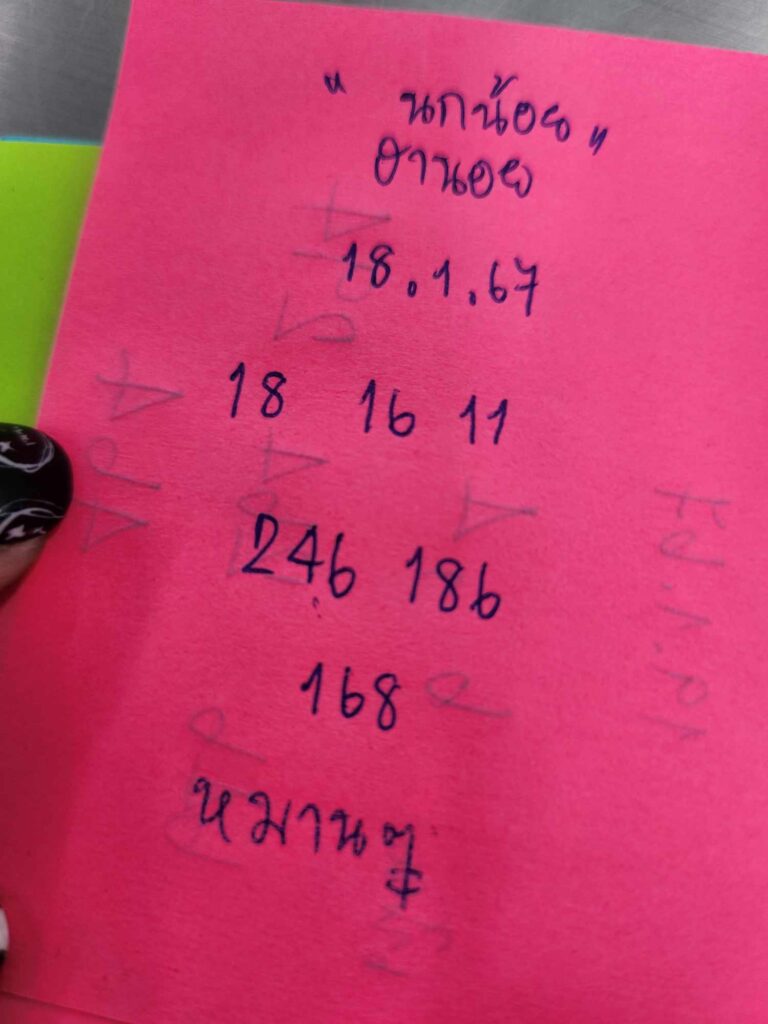 " นกน้อย "
ฮานอย
18.1.67
18 16 11
246 186
168
หมานๆ